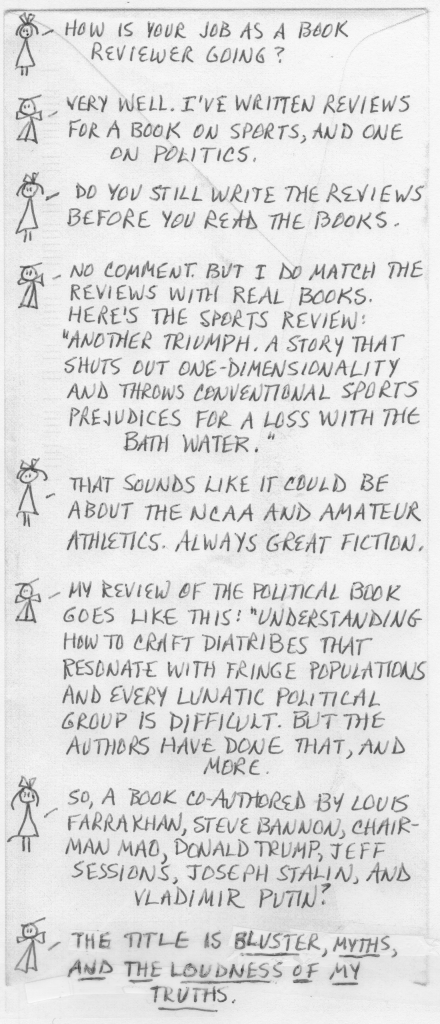 HOW IS YOUR JOB AS A BOOK
REVIEWER GOING?
VERY WELL. I'VE WRITTEN REVIEWS
FOR A BOOK ON SPORTS, AND ONE
ON POLITICS.
DO YOU STILL WRITE THE REVIEWS
BEFORE YOU READ THE BOOKS.
NO COMMENT. BUT I DO MATCH THE
REVIEWS WITH REAL BOOKS.
HERE'S THE SPORTS REVIEW:
"ANOTHER TRIUMPH. A STORY THAT
SHUTS OUT ONE-DIMENSIONALITY
AND THROWS CONVENTIONAL SPORTS
PREJUDICES FOR A LOSS WITH THE
BATH WATER."
THAT SOUNDS LIKE IT COULD BE
ABOUT THE NCAA AND AMATEUR
ATHLETICS. ALWAYS GREAT FICTION.
MY REVIEW OF THE POLITICAL BOOK
GOES LIKE THIS: "UNDERSTANDING
HOW TO CRAFT DIATRIBES THAT
RESONATE WITH FRINGE POPULATIONS
AND EVERY LUNATIC POLITICAL
GROUP IS DIFFICULT. BUT THE
AUTHORS HAVE DONE THAT, AND
MORE.
SO, A BOOK CO-AUTHORED BY LOUIS
FARRAKHAN, STEVE BANNON, CHAIR-
MAN MAO, DONALD TRUMP, JEFF
SESSIONS, JOSEPH STALIN, AND
VLADIMIR PUTIN?
THE TITLE IS BLUSTER, MYTHS,
AND THE LOUDNESS OF MY
TRUTHS.